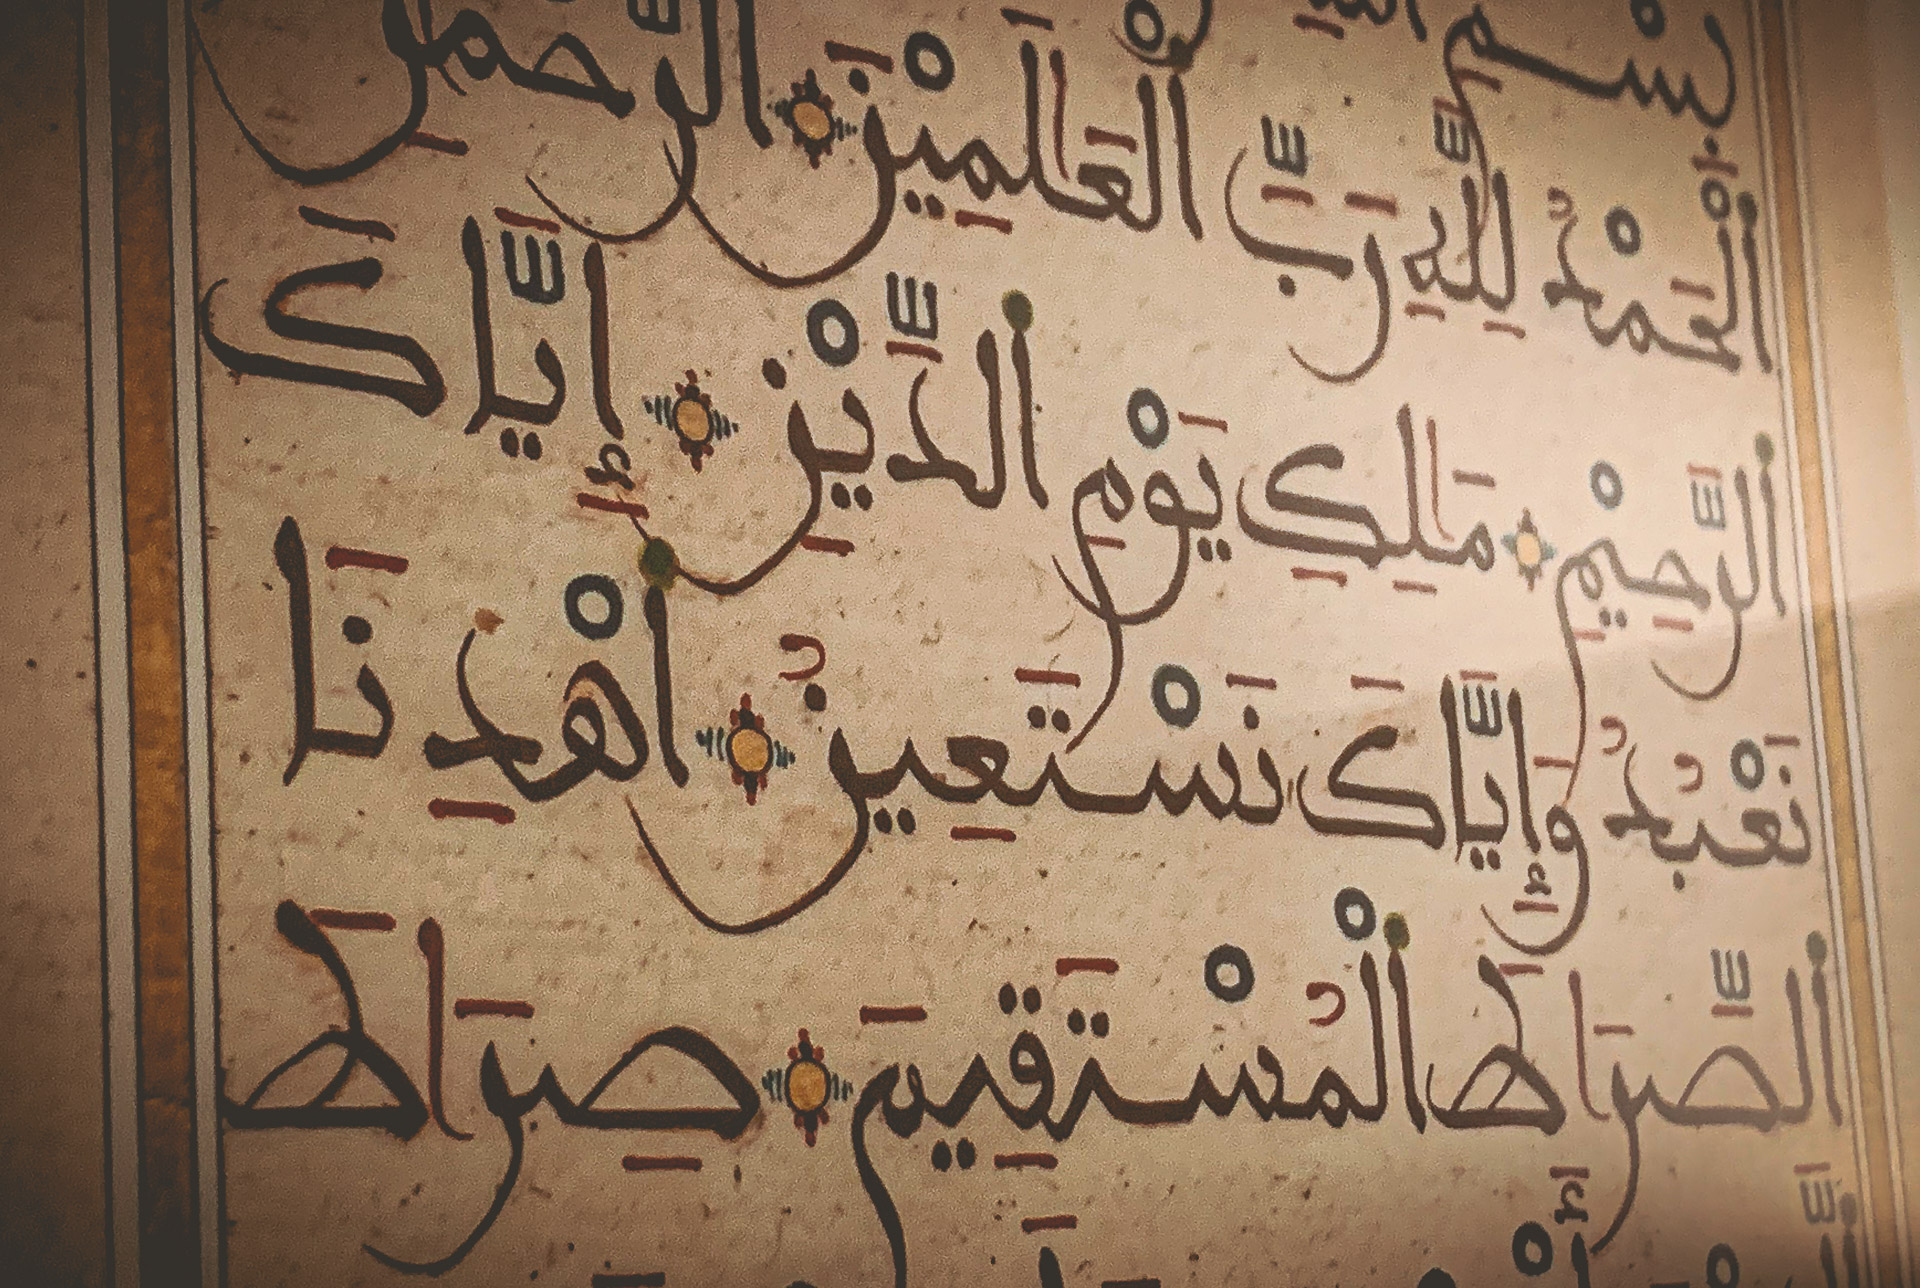 بِسْمِ اللهِ الرَّحْمٰنِ
اَلْحَمْدُ لِلهِ رَبِّ اَلْعَٰلَمِينَ
اَلرَّحِيمِ مَٰلِكِ يَوْمِ اِلدِّينِ إِيَّاكَ
نَعْبُدُ وَإِيَّاكَ نَسْتَعِينُ اِهْدِنَا
اَلصِّرَٰطَ اَلْمُسْتَقِيمَ صِرَٰطَ